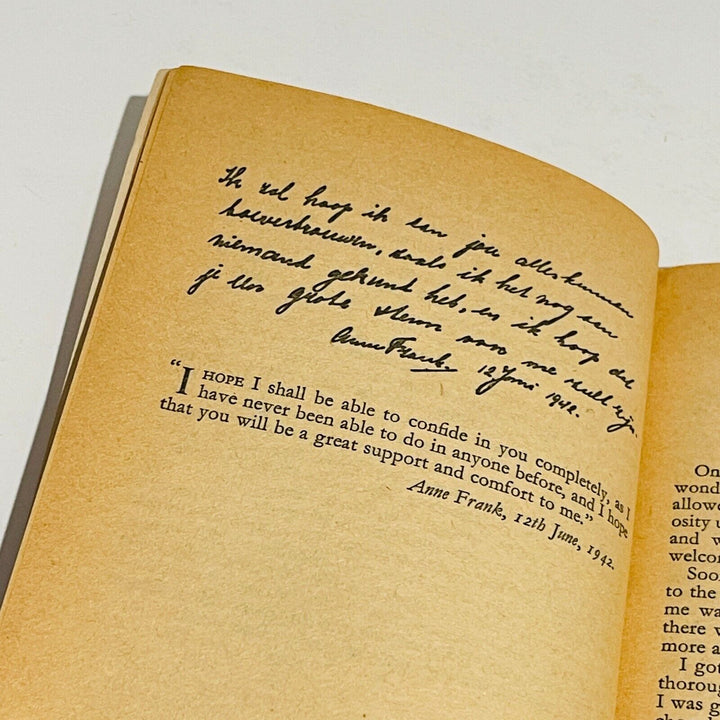 Ik zal hoop ik aan jou alles kunnen
toevertrouwen, zoals ik het nog aan
niemand gekund heb, en ik hoop dat
je een grote steun van me zult zijn.
Anne Frank. 12 Juni 1942.
"I HOPE I shall be able to confide in you completely, as I
have never been able to do in anyone before, and I hope
that you will be a great support and comfort to me."
Anne Frank, 12th June, 1942.
On
wond
allowe
osity u
and w
welcom
Soon
to the
me wa
there w
more a
I got
thoroug
I was g